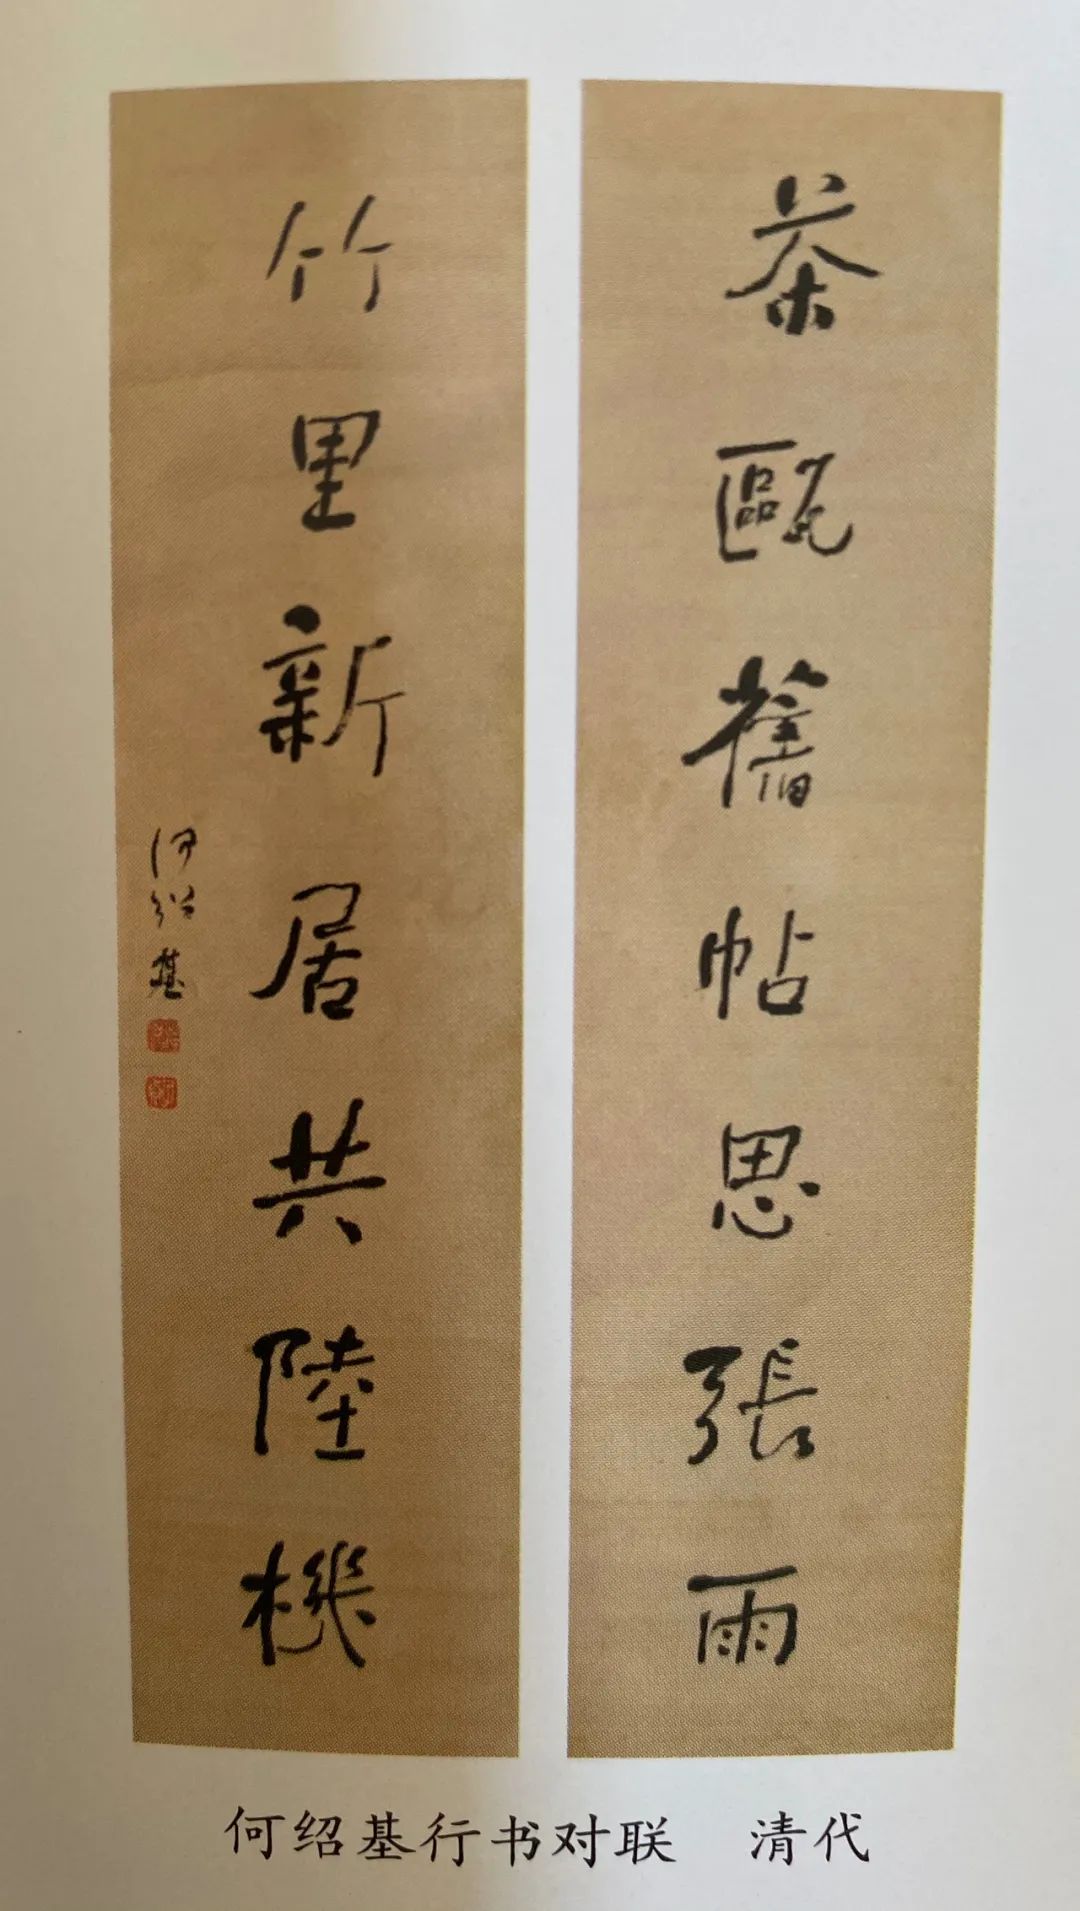 茶甌舊帖思張雨
竹里新居共陸機
何紹基
何绍基行书对联 清代